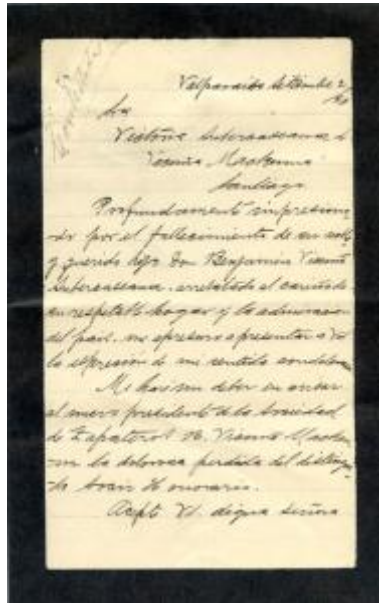 Valparaiso Setiembre 2/
Sra
Victoria Subercaseaux de
Vicuña Mackenna
Santiago
Profundamente impresiona
do por el fallecimiento de su noble
y querido hijo Don Benjamin Vicuña
Subercaseaux, arrebatado al cariño de
su respetable hogar y la admiracion
del pais, me apresuro a presentar a Vd
la espresion de mi sentida condolencia
Me hago un deber en enviar
al nuevo presidente de la Sociedad
de Zapateros B. Vicuña Macken
na la dolorosa perdida del distingui
do Socio Honorario.
Acpte Vd. digna señora